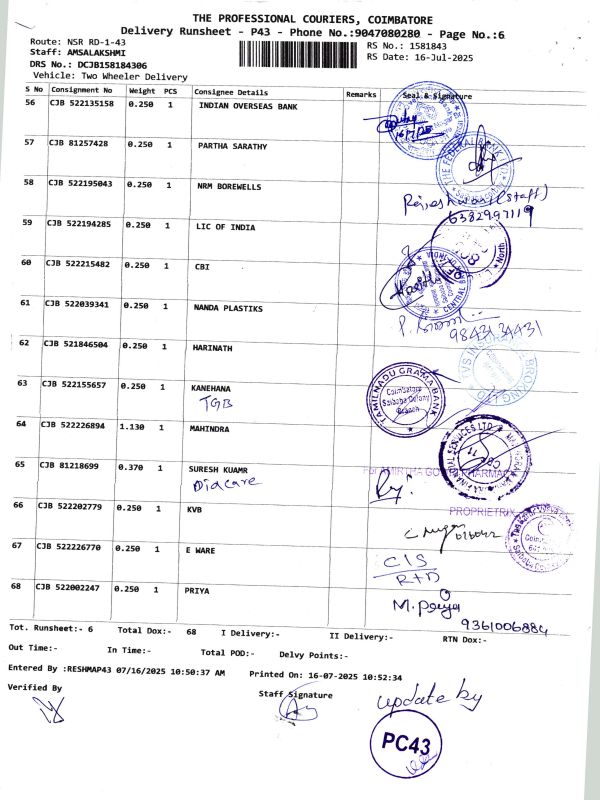 THE PROFESSIONAL COURIERS, COIMBATORE
Delivery Runsheet - P43 - Phone No.:9047080280 - Page No.:6
Route: NSR RD-1-43
RS No.: 1581843
Staff: AMSALAKSHMI
RS Date: 16-Jul-2025
DRS No.: DCJB158184306
Vehicle: Two Wheeler Delivery
S No Consignment No Weight PCS Consignee Details Remarks Seal & Signature
56 CJB 522135158 0.250 1 INDIAN OVERSEAS BANK
57 CJB 81257428 0.250 1 PARTHA SARATHY
THE FEDERAL BANK
58 CJB 522195043 0.250 1 NRM BOREWELLS
(staff)
6382997119
59 CJB 522194285 0.250 1 LIC OF INDIA
60 CJB 522215482 0.250 1 CBI
61 CJB 522039341 0.250 1 NANDA PLASTIKS
98431 31431
62 CJB 521846504 0.250 1 HARINATH
63 CJB 522155657 0.250 1 KANEHANA
TGB
TAMILNADU GRAMA BANK
Coimbatore
Saibaba Colony
Branch
64 CJB 522226894 1.130 1 MAHINDRA
65 CJB 81218699 0.370 1 SURESH KUAMR
Diacare
For AMIRTHA
PHARMACY
PROPRIETRIX
66 CJB 522202779 0.250 1 KVB
67 CJB 522226770 0.250 1 E WARE
CIS
R+D
68 CJB 522002247 0.250 1 PRIYA
M. Priya
9361006884
Tot. Runsheet:- 6 Total Dox:- 68 I Delivery:- II Delivery:- RTN Dox:-
Out Time:- In Time:- Total POD:- Delvy Points:-
Entered By :RESHMAP43 07/16/2025 10:50:37 AM Printed On: 16-07-2025 10:52:34
Verified By
Staff Signature
update by
PC43